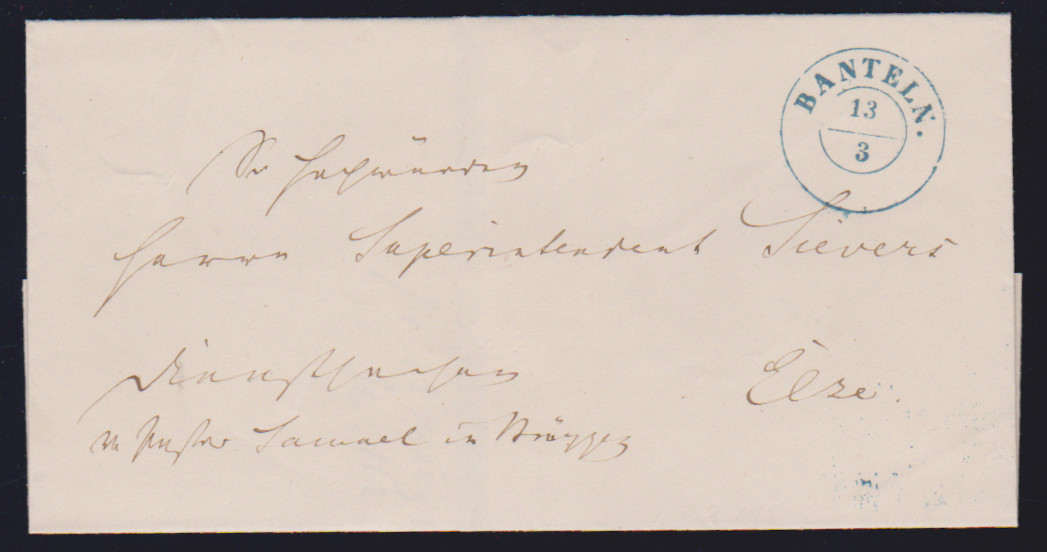 BANTELN.
13
3
Sr Hochwürden
Herrn Superintendent Sievers
Dienstsachen
Elze.
v. Pastor Samuel in Brüggen